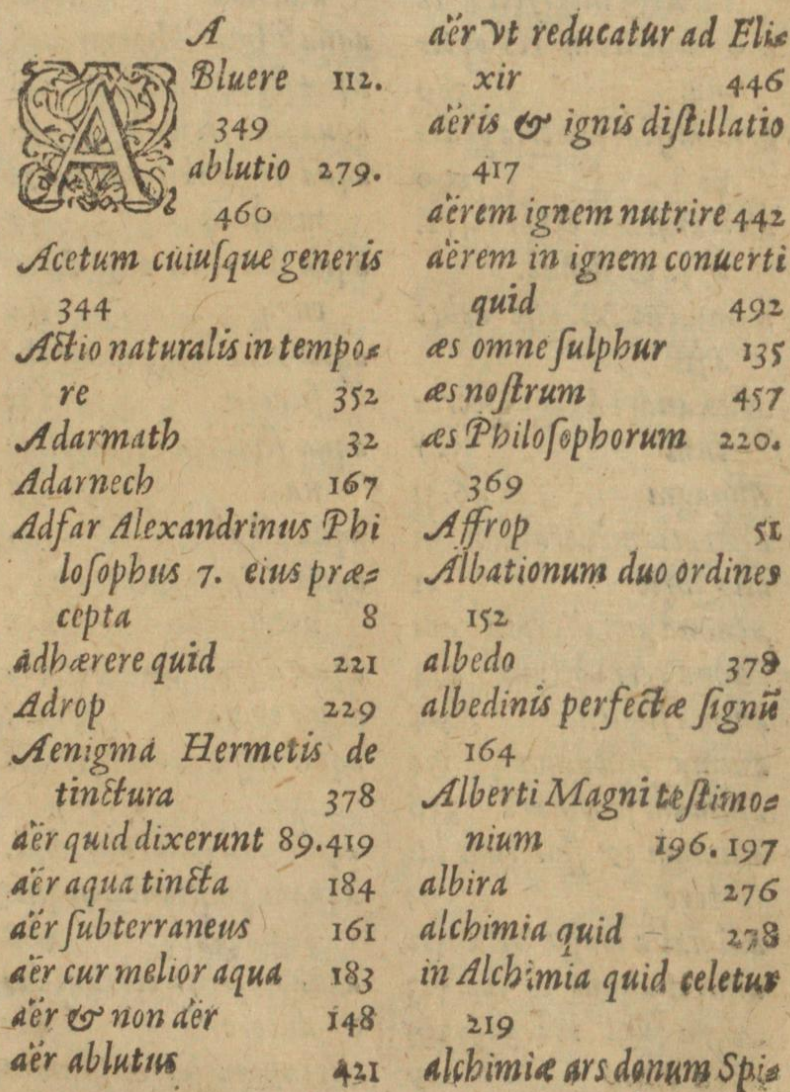 A
ABluere 112.
349
ablutio 279.
460
Acetum cuiuſque generis
344
Actio naturalis in tempo⸗
re 352
Adarmath 32
Adarnech 167
Adfar Alexandrinus Phi
loſophus 7. eius præ⸗
cepta 8
adhærere quid 221
Adrop 229
Aenigma Hermetis de
tinctura 378
aër quid dixerunt 89.419
aër aqua tincta 184
aër ſubterraneus 161
aër cur melior aqua 183
aër & non aër 148
aër ablutus 421
aër vt reducatur ad Eli⸗
xir 446
aëris & ignis diſtillatio
417
aërem ignem nutrire 442
aërem in ignem conuerti
quid 492
æs omne ſulphur 135
æs noſtrum 457
æs Philoſophorum 220.
369
Affrop 51
Albationum duo ordines
152
albedo 378
albedinis perfectæ ſignũ
164
Alberti Magni teſtimo⸗
nium 196. 197
albira 276
alchimia quid 278
in Alchimia quid celetur
219
alchimiæ ars donum Spi⸗